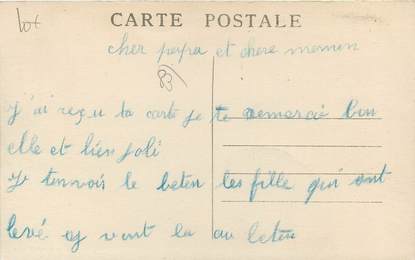 lot
CARTE POSTALE
cher papa et chere meman
83
j'ai reçu ta carte je te remerci bien
elle et bien joli
je tenvois le beten les fille qui ont
levé